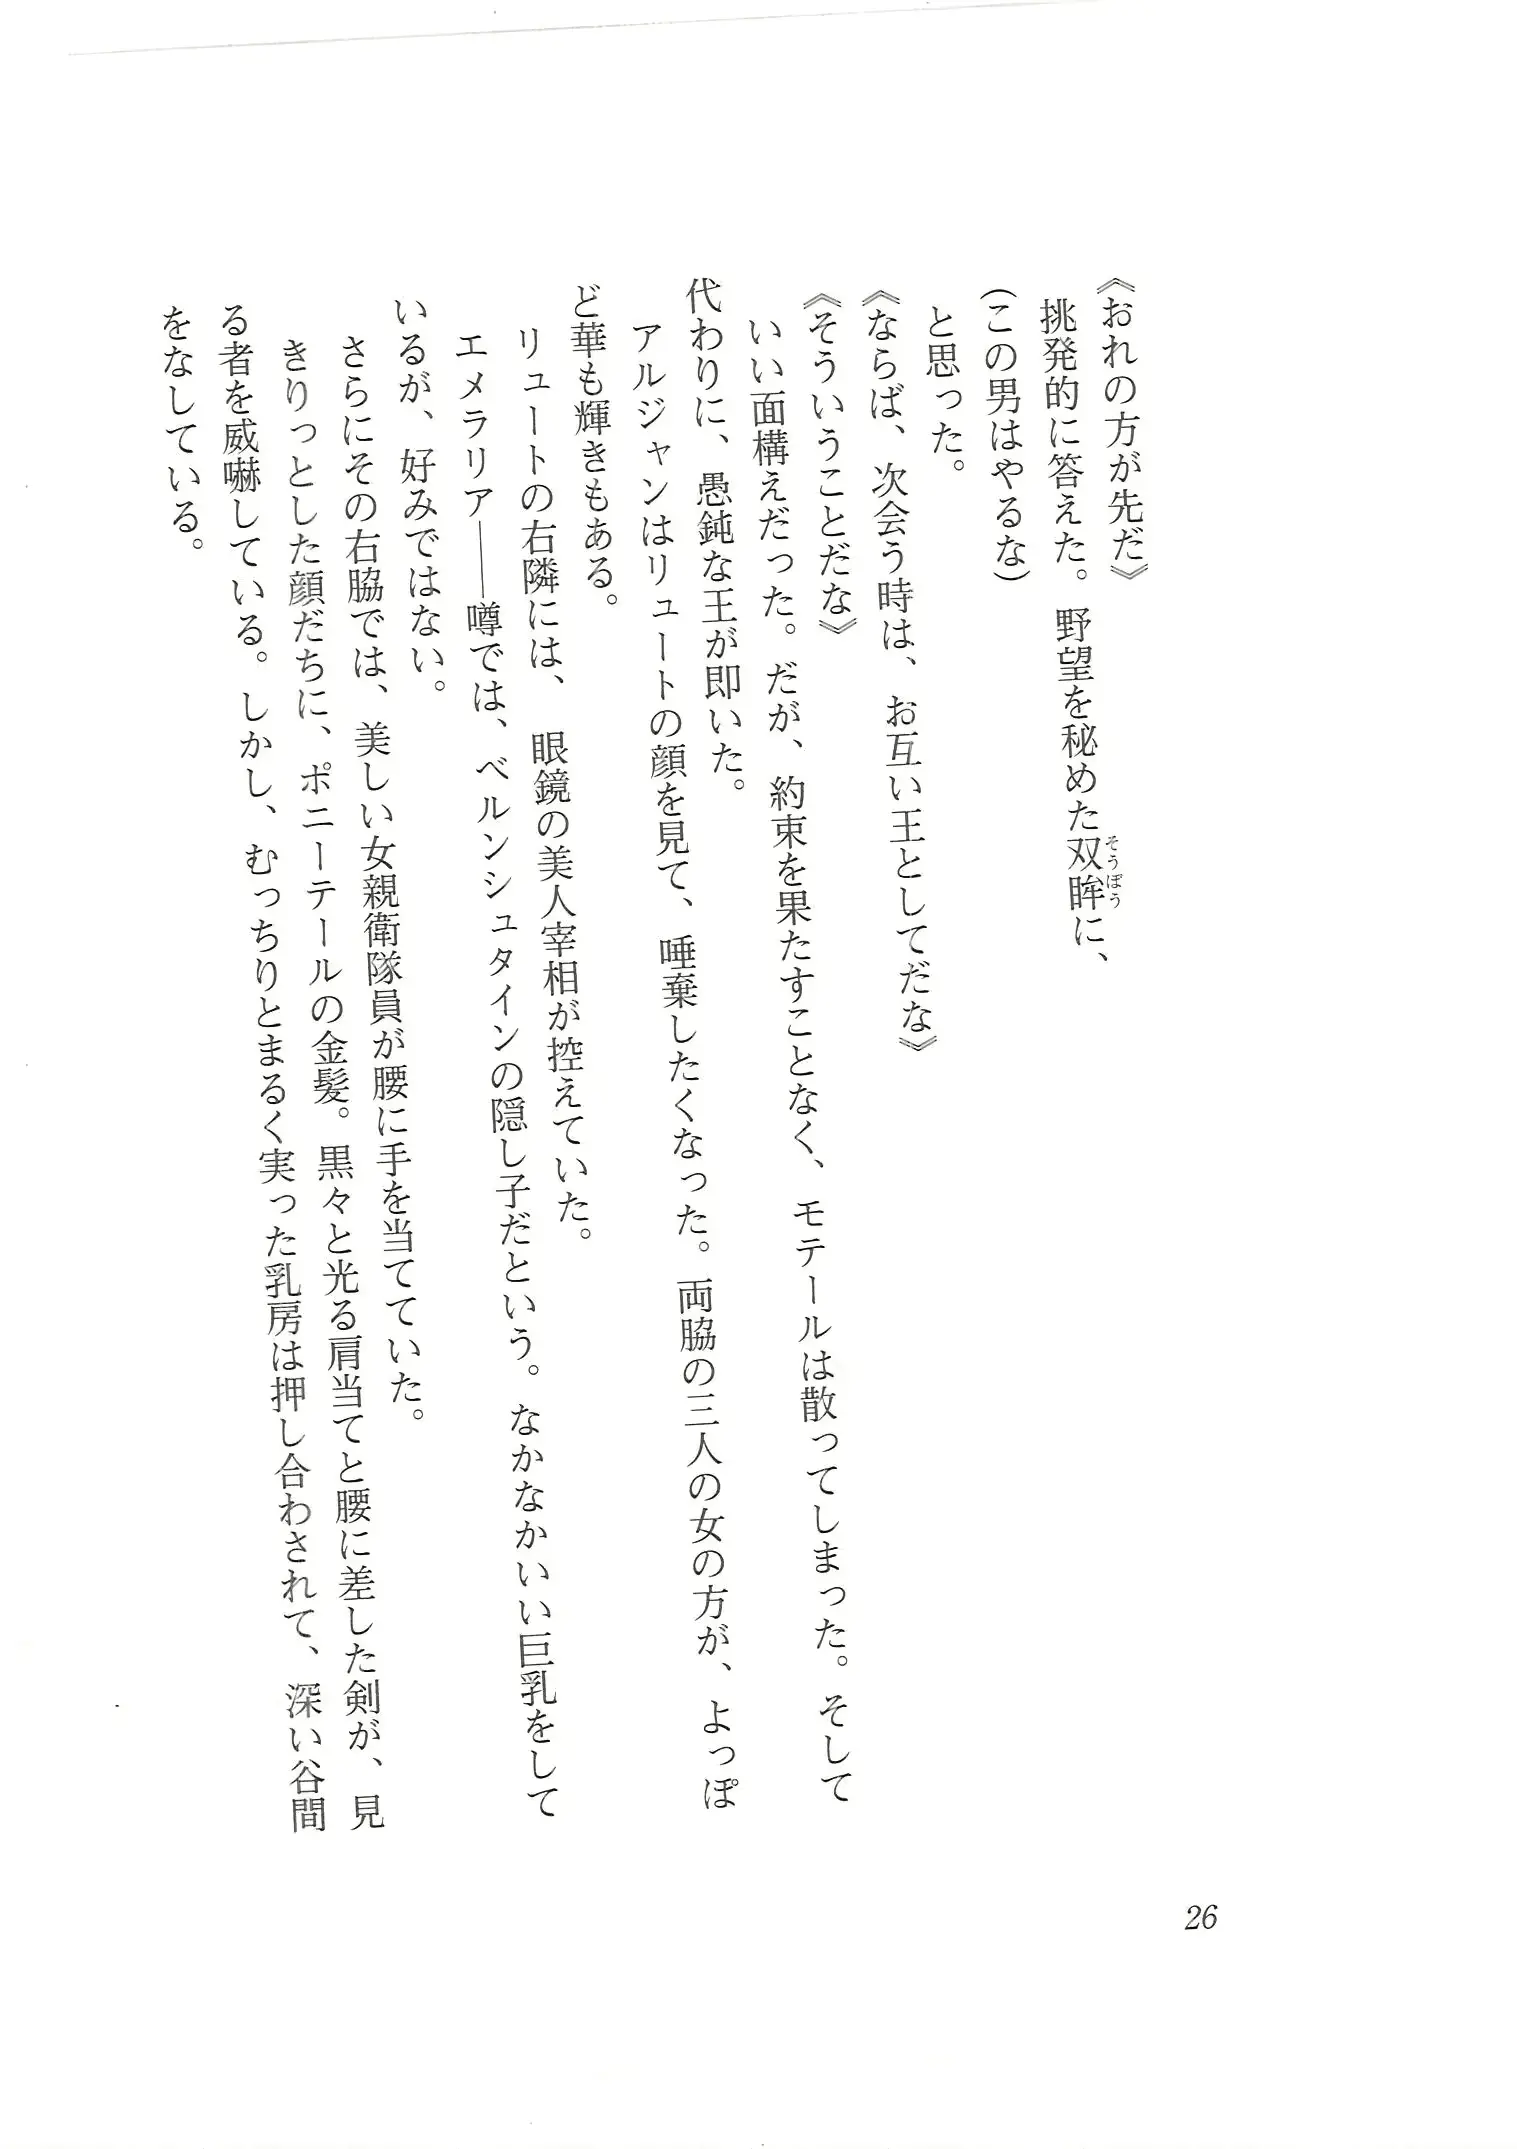 《おれの方が先だ》
挑発的に答えた。野望を秘めた双眸に、
そうぼう
(この男はやるな)
と思った。
《ならば、次会う時は、お互い王としてだな》
《そういうことだな》
いい面構えだった。だが、約束を果たすことなく、モテールは散ってしまった。そして
代わりに、愚鈍な王が即いた。
アルジャンはリュートの顔を見て、唾棄したくなった。両脇の三人の女の方が、よっぽ
ど華も輝きもある。
リュートの右隣には、眼鏡の美人宰相が控えていた。
エメラリア――噂では、ベルンシュタインの隠し子だという。なかなかいい巨乳をして
いるが、好みではない。
さらにその右脇では、美しい女親衛隊員が腰に手を当てていた。
きりっとした顔だちに、ポニーテールの金髪。黒々と光る肩当てと腰に差した剣が、見
る者を威嚇している。しかし、むっちりとまるく実った乳房は押し合わされて、深い谷間
をなしている。
26